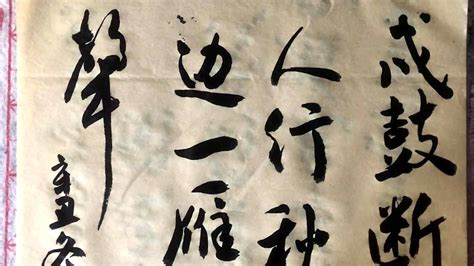 戍鼓断
人行秋
边一雁
聲
辛丑冬